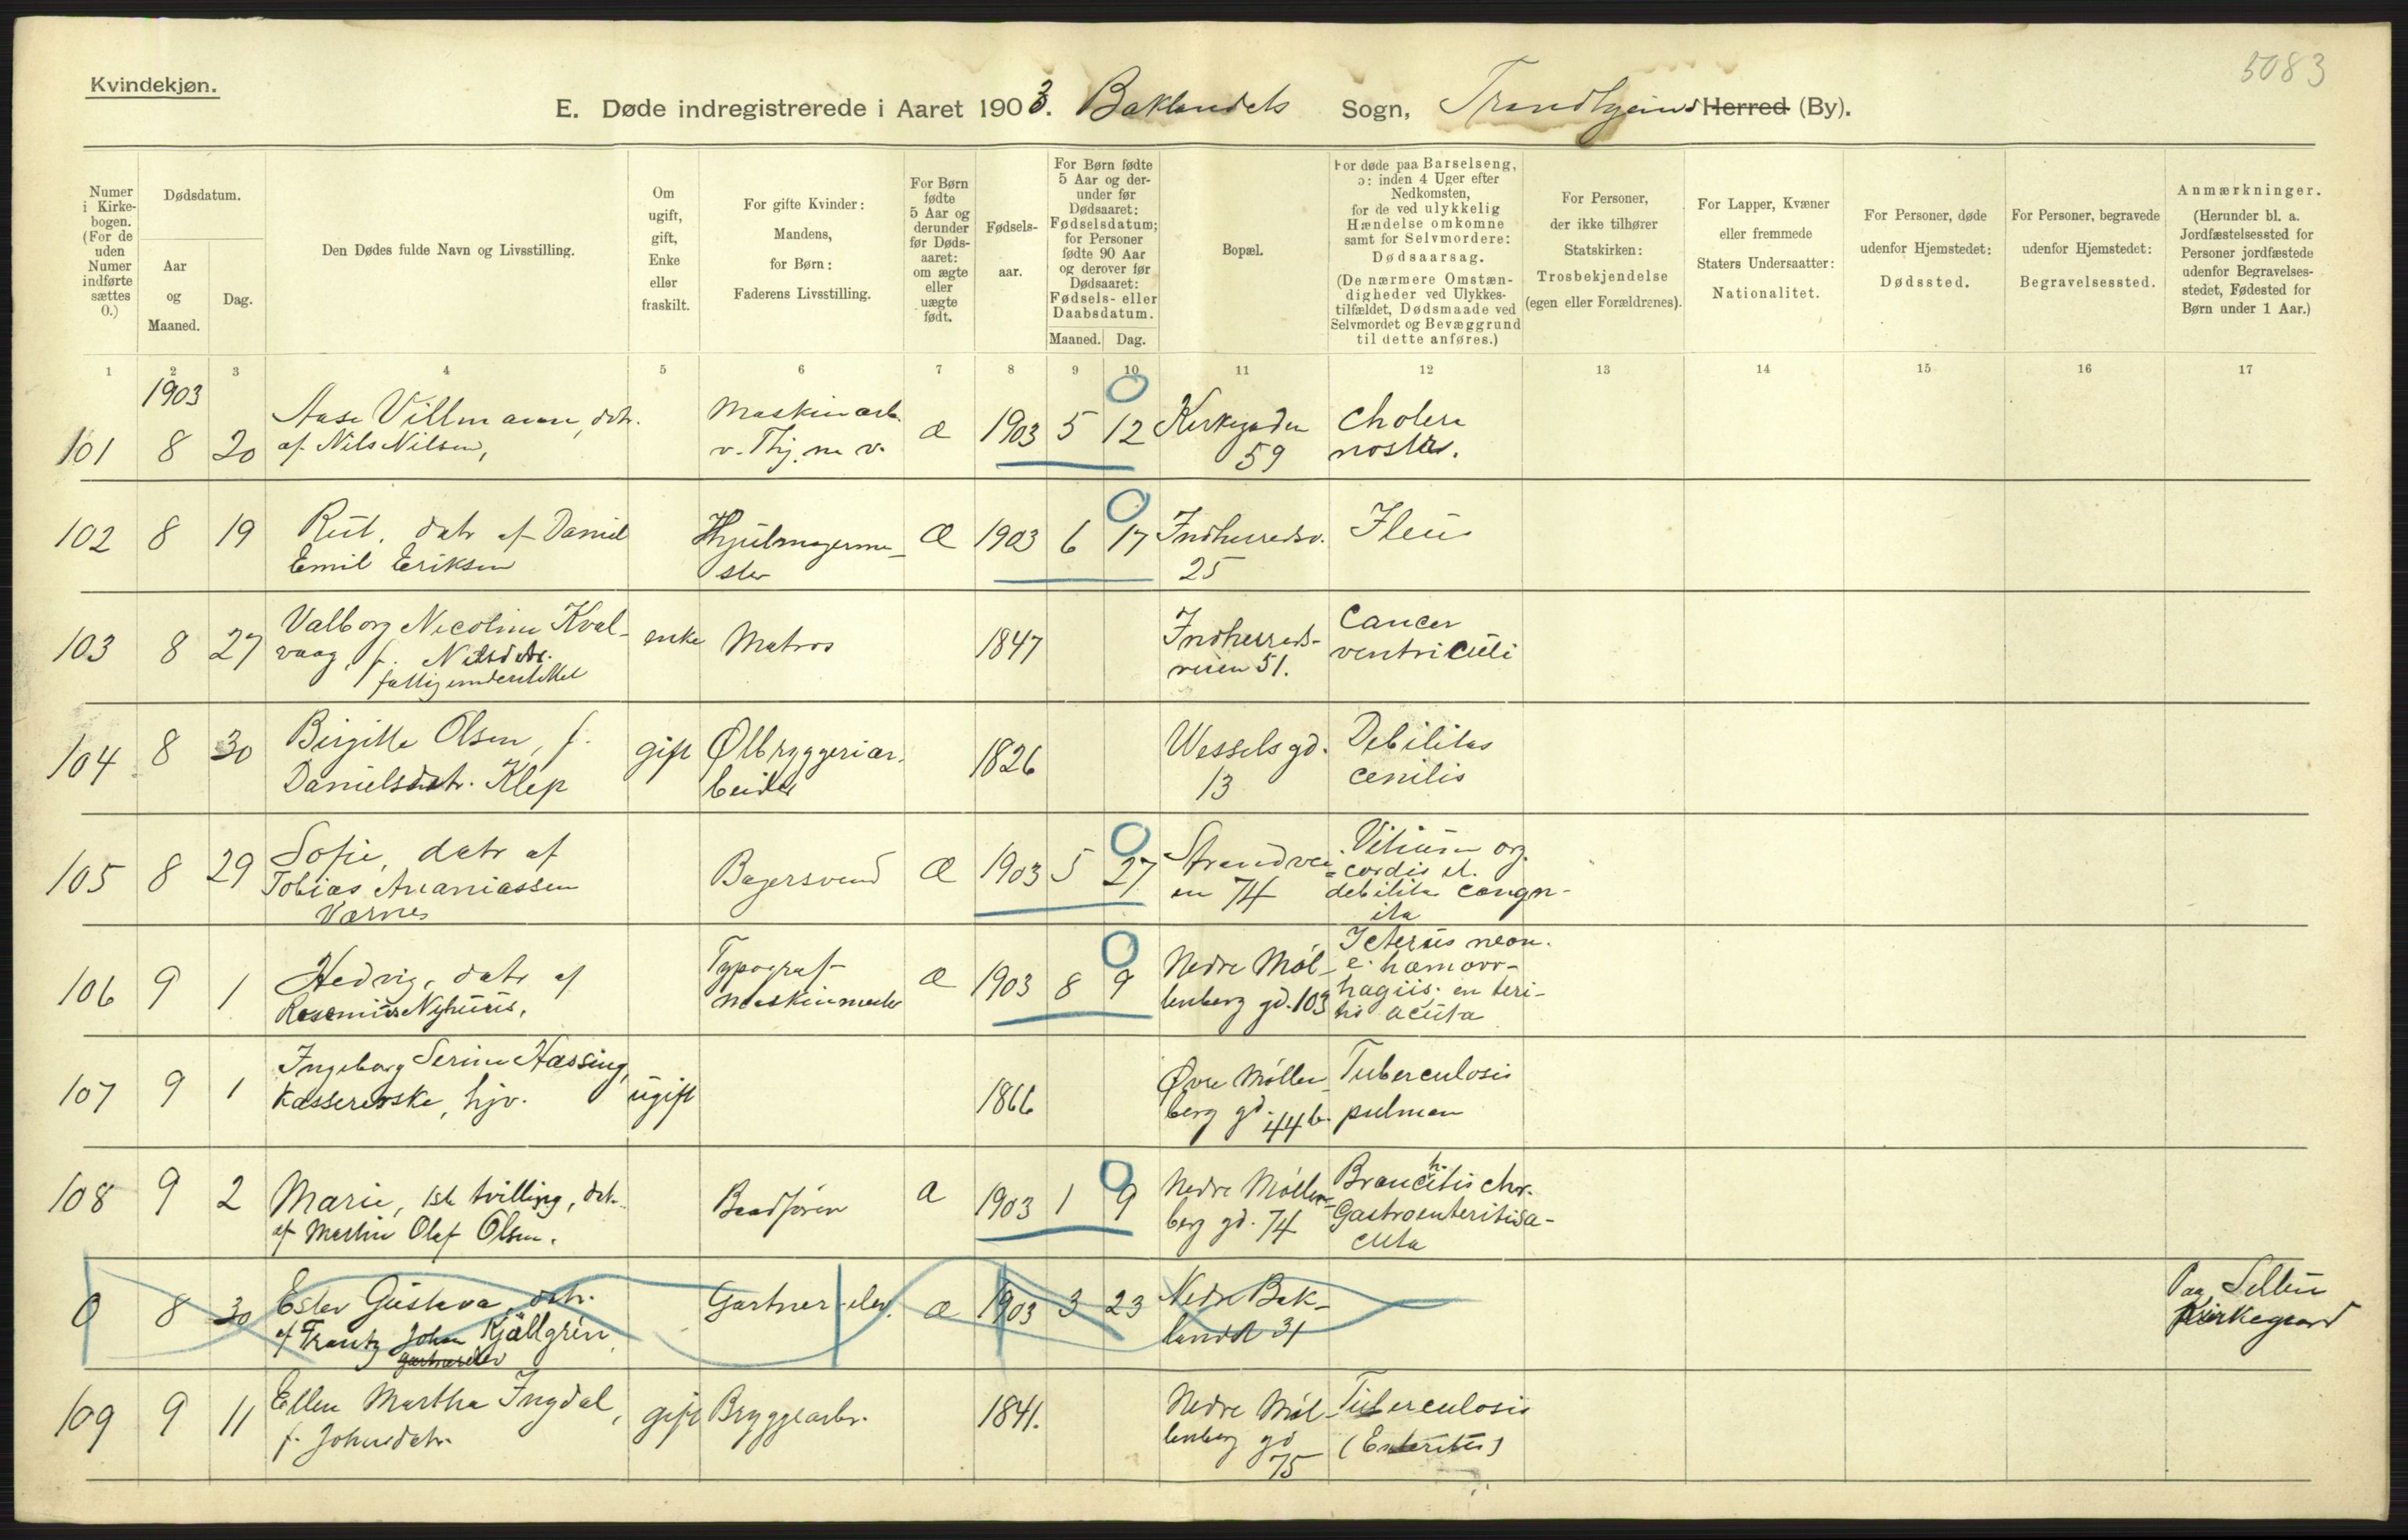 5083
Kvindekjøn.
E. Døde indregistrerede i Aaret 1903. Baklandets Sogn, Trondhjems Herred (By).
Numer i Kirkebogen. (For de uden Numer indførte sættes 0.)
Dødsdatum.
Aar og Maaned.
Dag.
Den Dødes fulde Navn og Livsstilling.
Om ugift, gift, Enke eller fraskilt.
For gifte Kvinder: Mandens, for Børn: Faderens Livsstilling.
For Børn fødte 5 Aar og derunder før Dødsaaret: om ægte eller uægte født.
Fødselsaar.
For Børn fødte 5 Aar og derunder før Dødsaaret: Fødselsdatum; for Personer fødte 90 Aar og derover før Dødsaaret: Fødsels- eller Daabsdatum.
Maaned. Dag.
Bopæl.
For døde paa Barselseng, ɔ: inden 4 Uger efter Nedkomsten, for de ved ulykkelig Hændelse omkomne samt for Selvmordere: Dødsaarsag.
(De nærmere Omstændigheder ved Ulykkestilfældet, Dødsmaade ved Selvmordet og Bevæggrund til dette anføres.)
For Personer, der ikke tilhører Statskirken: Trosbekjendelse (egen eller Forældrenes).
For Lapper, Kvæner eller fremmede Staters Undersaatter: Nationalitet.
For Personer, døde udenfor Hjemstedet: Dødssted.
For Personer, begravede udenfor Hjemstedet: Begravelsessted.
Anmærkninger. (Herunder bl. a. Jordfæstelsessted for Personer jordfæstede udenfor Begravelsesstedet, Fødested for Børn under 1 Aar.)
1 2 3 4 5 6 7 8 9 10 11 12 13 14 15 16 17
1903
101 8 20 Aase Villmann, dtr. af Nils Nilsen, Maskinarb. v. Thj. m v. æ 1903 5 12 Kirkegaden 59 cholera nostra.
102 8 19 Rut, datr af Daniel Emil Eriksen Hjulmagermester Æ 1903 6 17 Indherredsv. 25 Ileus
103 8 27 Valborg Nicoline Kvalvaag, f. Nilsdatr. fattigunderstøttet enke Matros 1847 Indherredsveien 51. Cancer ventriculi
104 8 30 Birgitte Olsen, f. Danielsdatr. Klep gift Ølbryggeriarbeider 1826 Wessels gd. 13 Debilitas cenilis
105 8 29 Sofie, datr af Tobias Ananiassen Værnes Bagersvend Æ 1903 5 27 Strandveien 74 Vitium org. cordis et. debilitas congnita
106 9 1 Hedvig, datr af Rasmus Nyhuus, Typograf maskinmester æ 1903 8 9 Nedre Møllenberg gd. 103 Icterus neon. e. hæmorrhagiis; enteritis acuta
107 9 1 Ingeborg Serine Hassing, kassererske, hjv. ugift 1866 Øvre Møllenberg gd. 44 b. Tuberculosis pulmon
108 9 2 Marie, 1ste tvilling, datr. af Martin Olaf Olsen. Baadfører æ 1903 1 9 Nedre Møllenberg gd. 74 Bronchitis chr. Gastroenteritis acuta
0 8 30 Ester Gustava, datr. af Frantz Johan Kjällgren, gartnerelev Gartner-elev. æ 1903 3 23 Nedre Baklandet 31 Paa kirkegaard
109 9 11 Ellen Martha Ingdal, f. Johnsdatr. gift Bryggearbr. 1841. Nedre Møllenberg gd 75 Tuberculosis (Enteritis)